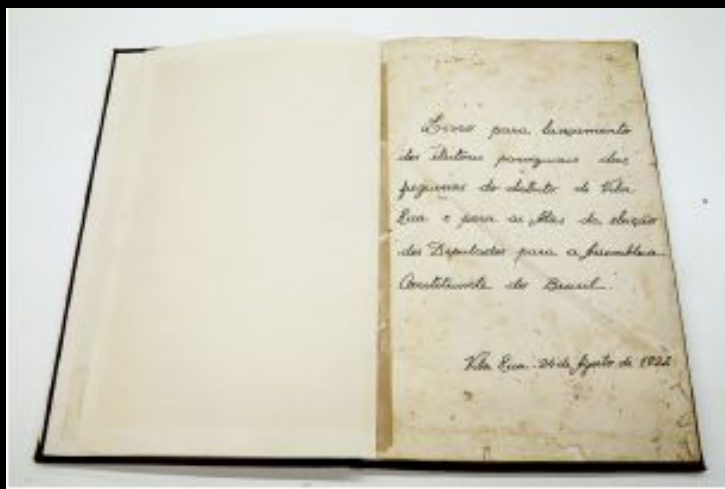 Livro para lançamento
dos eleitores paroquiais das
freguesias do distrito de Vila
Rica e para as Atas da eleição
dos Deputados para a Assemblea
Constituinte do Brasil.
Vila Rica 24 de Agosto de 1822